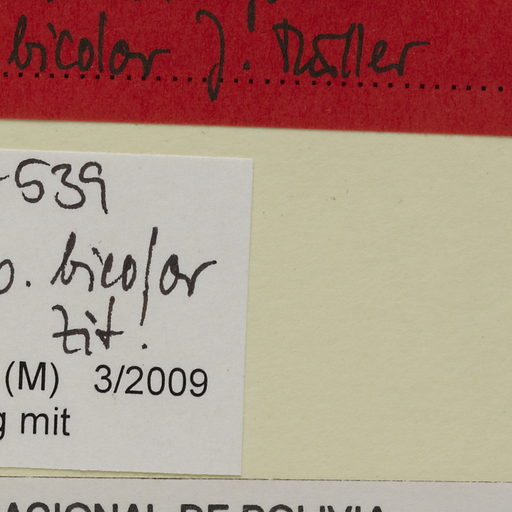 bicolor J. Müller
-539
p. bicolor
zit!
(M) 3/2009
g mit
NACIONAL DE BOLIVIA